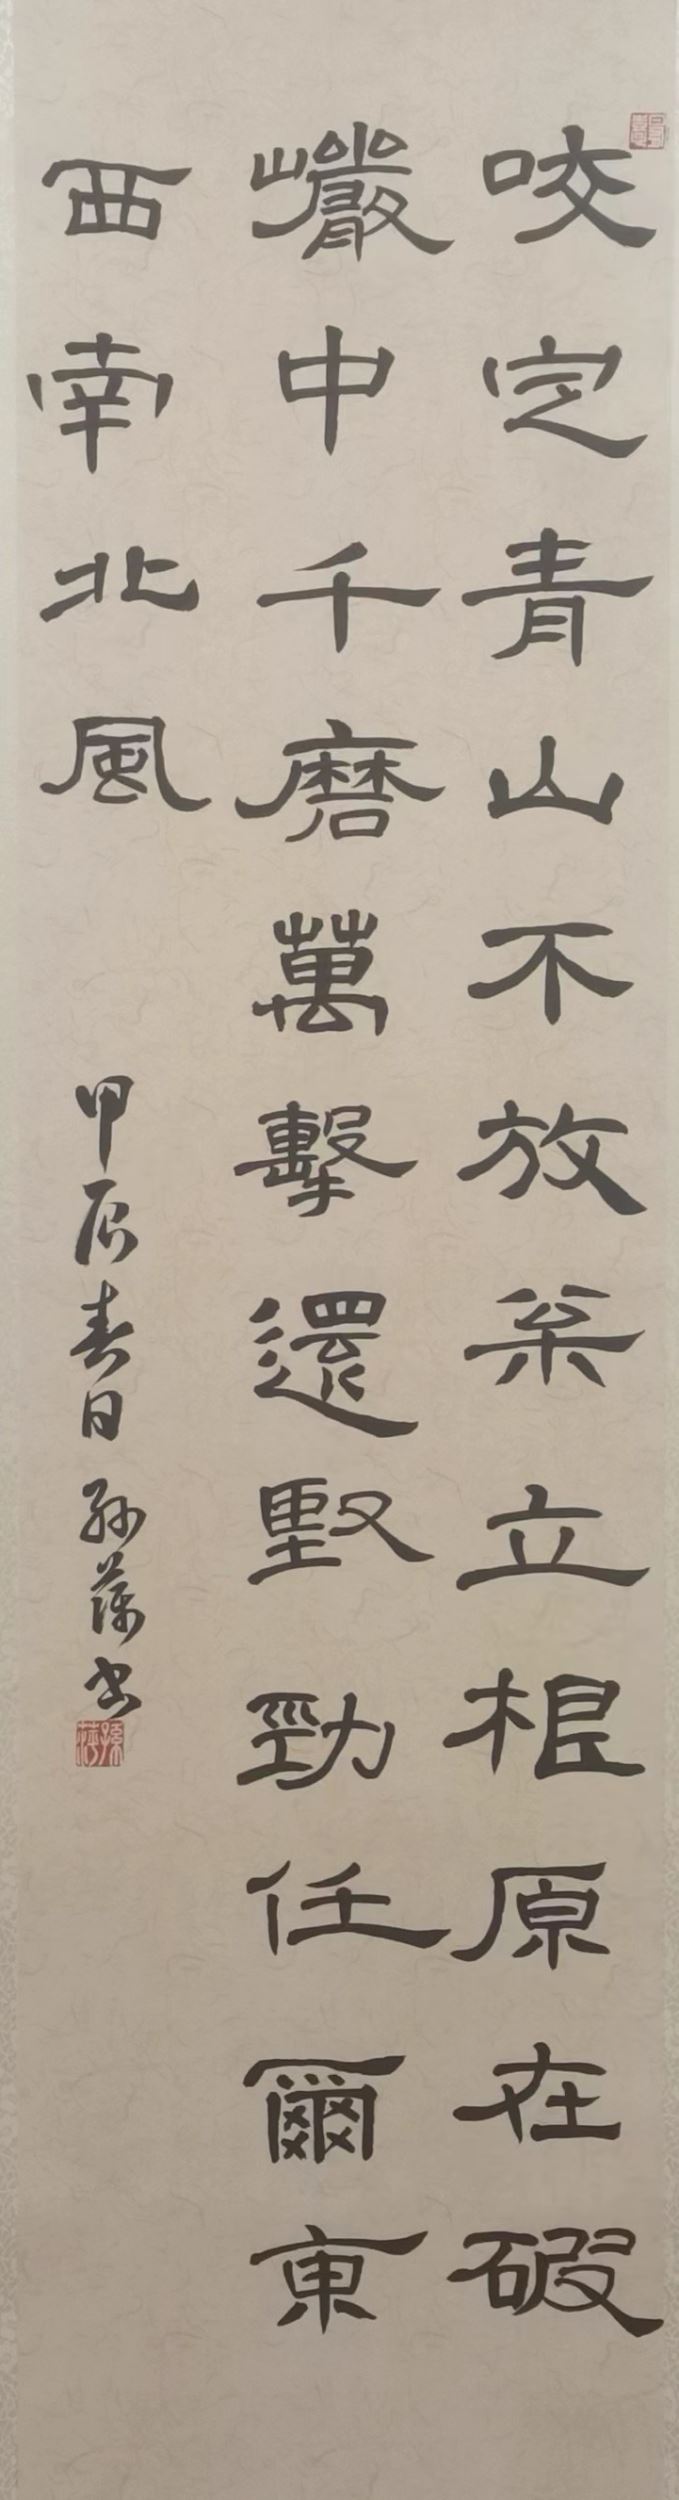 咬定青山不放枀立根原在破
巗中千磨萬擊還堅勁任爾東
西南北風
甲辰春日孫萍书
孫萍